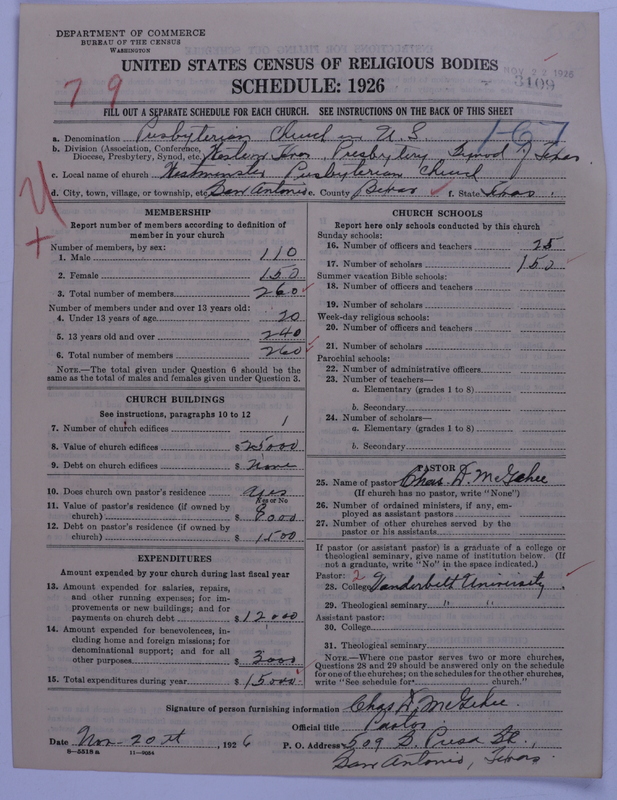 DEPARTMENT OF COMMERCE
BUREAU OF THE CENSUS
WASHINGTON
UNITED STATES CENSUS OF RELIGIOUS BODIES
NOV 22 1926
SCHEDULE: 1926
3109
79
FILL OUT A SEPARATE SCHEDULE FOR EACH CHURCH. SEE INSTRUCTIONS ON THE BACK OF THIS SHEET
1-67
a. Denomination Presbyterian Church in U.S.
b. Division (Association, Conference, Diocese, Presbytery, Synod, etc.) Western Texas Presbytery Synod of Texas
c. Local name of church Westminster Presbyterian Church
d. City, town, village, or township, etc. San Antonio e. County Bexar f. State Texas
MEMBERSHIP
Report number of members according to definition of
member in your church
Number of members, by sex:
1. Male 110
2. Female 150
3. Total number of members 260
Number of members under and over 13 years old:
4. Under 13 years of age 20
5. 13 years old and over 240
6. Total number of members 260
NOTE.—The total given under Question 6 should be the
same as the total of males and females given under Question 3.
CHURCH BUILDINGS
See instructions, paragraphs 10 to 12
7. Number of church edifices 1
8. Value of church edifices $ 25000
9. Debt on church edifices $ None
10. Does church own pastor's residence yes
Yes or No
11. Value of pastor's residence (if owned by
church) $ 8000
12. Debt on pastor's residence (if owned by
church) $ 1500
EXPENDITURES
Amount expended by your church during last fiscal year
13. Amount expended for salaries, repairs,
and other running expenses; for im-
provements or new buildings; and for
payments on church debt $ 12000
14. Amount expended for benevolences, in-
cluding home and foreign missions; for
denominational support; and for all
other purposes $ 3000
15. Total expenditures during year $ 15000
CHURCH SCHOOLS
Report here only schools conducted by this church
Sunday schools:
16. Number of officers and teachers 25
17. Number of scholars 150
Summer vacation Bible schools:
18. Number of officers and teachers
19. Number of scholars
Week-day religious schools:
20. Number of officers and teachers
21. Number of scholars
Parochial schools:
22. Number of administrative officers
23. Number of teachers—
a. Elementary (grades 1 to 8)
b. Secondary
24. Number of scholars—
a. Elementary (grades 1 to 8)
b. Secondary
PASTOR
25. Name of pastor Chas. D. McGehee
(If church has no pastor, write "None")
26. Number of ordained ministers, if any, em-
ployed as assistant pastors
27. Number of other churches served by the
pastor or his assistants
If pastor (or assistant pastor) is a graduate of a college or
theological seminary, give name of institution below. (If
not a graduate, write "No" in the space indicated.)
Pastor: 2
28. College Vanderbilt University
29. Theological seminary " "
Assistant pastor:
30. College
31. Theological seminary
NOTE.—Where one pastor serves two or more churches,
Questions 28 and 29 should be answered only on the schedule
for one of the churches; on the schedules for the other churches,
write "See schedule for church."
Signature of person furnishing information Chas D. McGehee
Official title Pastor
Date Nov. 20th, 1926 P. O. Address 509 S. Presa St.,
8—5518 a 11—9034
San Antonio, Texas.